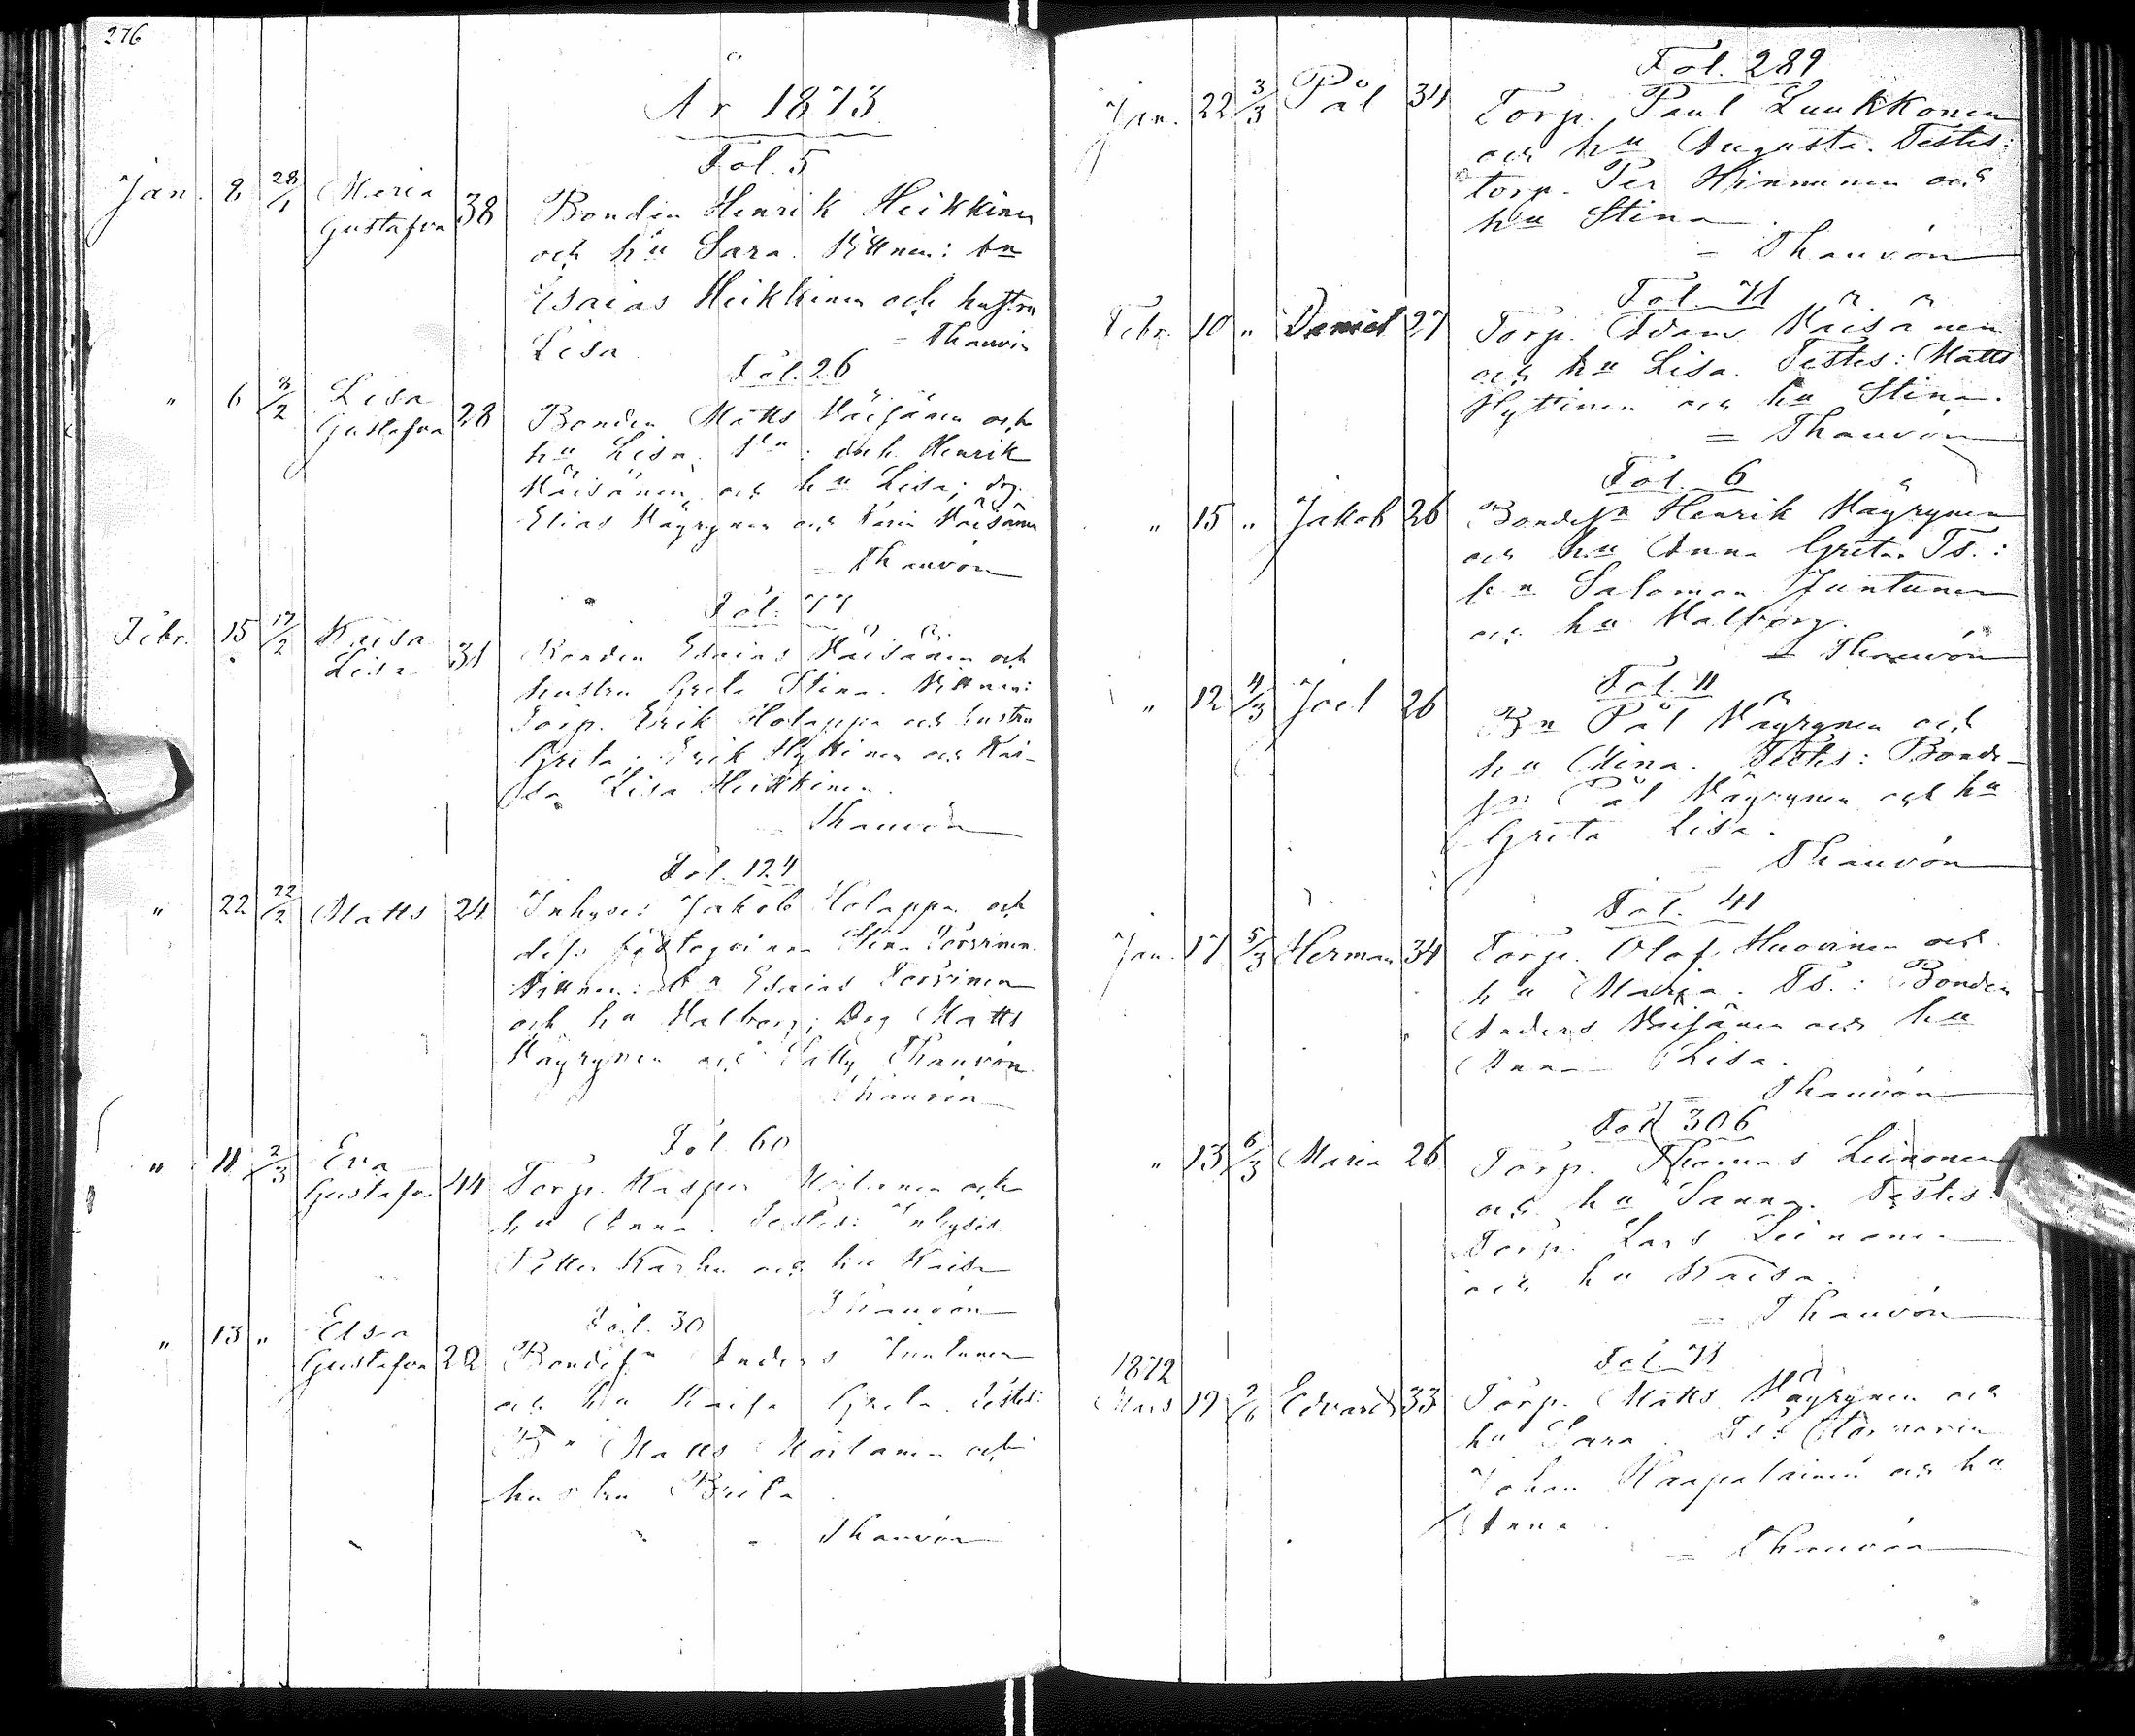 276
År 1873
Fol. 5
Jan. 8 28/1 Maria Gustafva 38 Bonden Henrik Heikkinen
och hu Sara. Vittnen: bn
Esaias Heikkinen och hustru
Lisa = Thauvón
Fol. 26
" 6 2/2 Lisa Gustafva 28 Bonden Matts Väisänen och
hu Lisa. : Henrik
Väisänen och hu Lisa; drg
Elias Väyrynen och Väisänen
= Thauvón
Fol. 77
Febr. 15 17/2 Kaisa Lisa 31 Bonden Esaias Väisänen och
hustru Greta Stina. Vittnen:
Torp. Erik Holappa och hustru
Greta; Erik Hyttinen och Kai-
sa Lisa Heikkinen.
Thauvón
Fol. 124
" 22 22/2 Matts 24 Inhyses Jakob Holappa och
dess fästeqvinna Stina Torvinen.
Vittnen: bn Esaias Torvinen
och hu Valborg; Drg Matts
Väyrynen och Thauvón
Thauvón
Fol. 60
" 11 2/3 Eva Gustafva 44 Torp. Kasper Moilanen och
hu Anna. Testes: Inhyses
Petter Karhu och hu Kaisa
Thauvón
Fol. 30
" 13 " Elsa Gustafva 22 Bondesn Anders Juntunen
och hu Kaisa Greta. Testes:
Bn Matts Moilanen och
hustru Brita
= Thauvón
Fol. 289
Jan. 22 3/3 Pål 34 Torp. Paul Luukkonen
och hu Augusta. Testes:
torp. Per Hinnunen och
hu Stina.
= Thauvón
Fol. 71
Febr. 10 " Daniel 27 Torp. Adam Väisänen
och hu Lisa. Testes: Matts
Hyttinen och hu Stina.
= Thauvón
Fol. 6
" 15 " Jakob 26 Bondesn Henrik Väyrynen
och hu Anna Greta. Ts.:
bn Salomon Juntunen
och hu Valborg.
= Thauvón
Fol. 11
" 12 4/3 Joel 26 Bn Pål Väyrynen och
hu Stina. Testes: Bonde-
sn Pål Väyrynen och hu
Greta Lisa.
= Thauvón
Fol. 41
Jan. 17 5/3 Herman 34 Torp. Olof Huovinen och
hu Maria. Ts.: Bonden
Anders Väisänen och hu
Anna Lisa.
= Thauvón
Fol. 306
" 13 6/3 Maria 26 Torp. Thomas Leinonen
och hu Sanna. Testes:
Torp. Lars Leinonen
och hu Kaisa.
= Thauvón
Fol. 71
1872
Mars 19 9/6 Edvard 33 Torp. Matts Väyrynen och
hu Sara. Ts:
Johan Haapalainen och hu
Anna.
= Thauvón